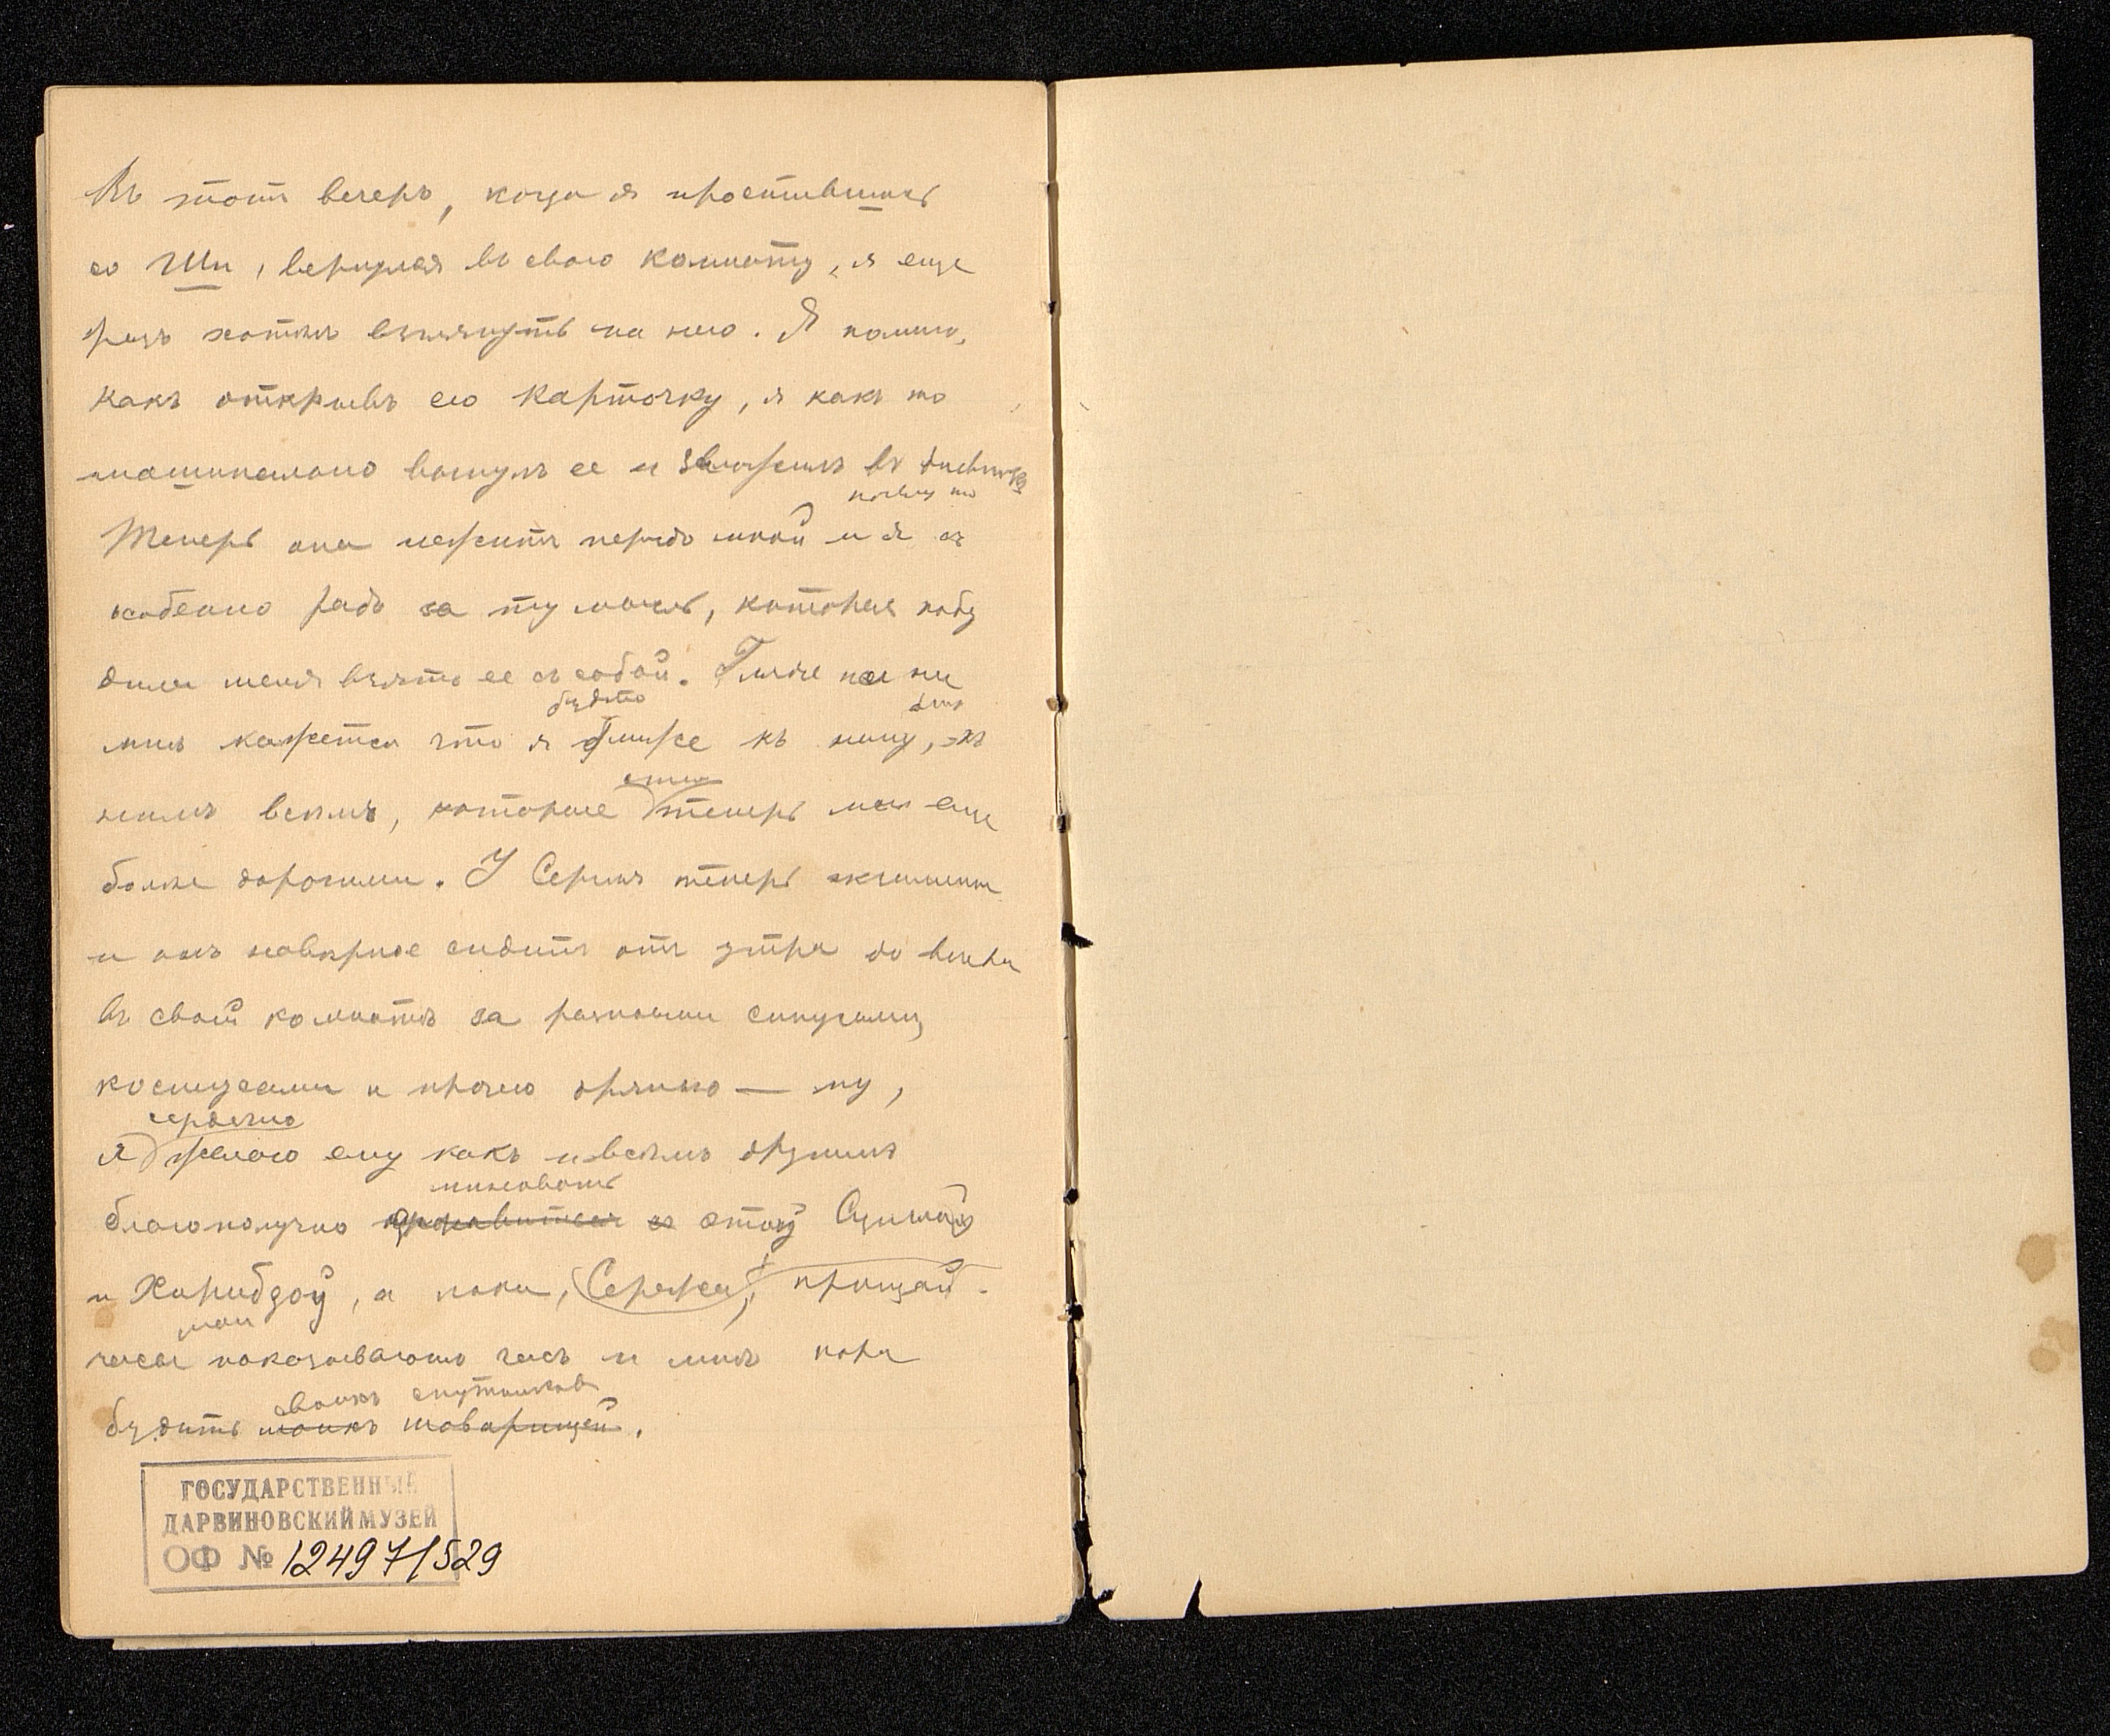 Въ тотъ вечеръ, когда я простившись
со Ши, вернулся въ свою комнату, я еще
разъ хотѣлъ взглянуть на него. Я помню,
какъ открывъ его карточку, я какъ то
машинально вынулъ ее и вложилъ въ дневникъ
почему то
Теперь она лежитъ передо мной и я
особенно радъ за ту мысль, которая побу
дила меня взять ее съ собой. Глядя на
будто
мнѣ кажется что я ближе къ нему, къ
нимъ всѣмъ, которые теперь мнѣ еще
болѣе дороги. У Сережи теперь экзамены
и онъ навѣрное сидитъ отъ утра до вечера
въ своей комнатѣ за разными синусами,
косинусами и прочею дрянью — ну,
сердечно
я желаю ему какъ и всѣмъ другимъ
миновать
благополучно справиться съ этой Сциллой
и Харибдой, а пока, Сережа, прощай.
мои
часы показываютъ часъ и мнѣ пора
своихъ спутниковъ
будить моихъ товарищей.
ГОСУДАРСТВЕННЫЙ
ДАРВИНОВСКИЙ МУЗЕЙ
ОФ № 12497/529